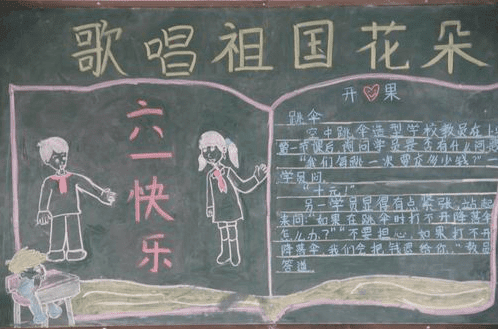 歌唱祖国花朵
六一快乐
开 果
跳伞
空中跳伞造型学校教员在上
第一节课后,询问学员是否有什么问题
"我们每跳一次需交多少钱?"一
学员问
"十元!"
另一学员显得有点紧张,站起
来问"如果在跳伞时打不开降落伞
怎么办?""不要担心,如果打不开
降落伞,我们会把钱退给你,"教员
答道